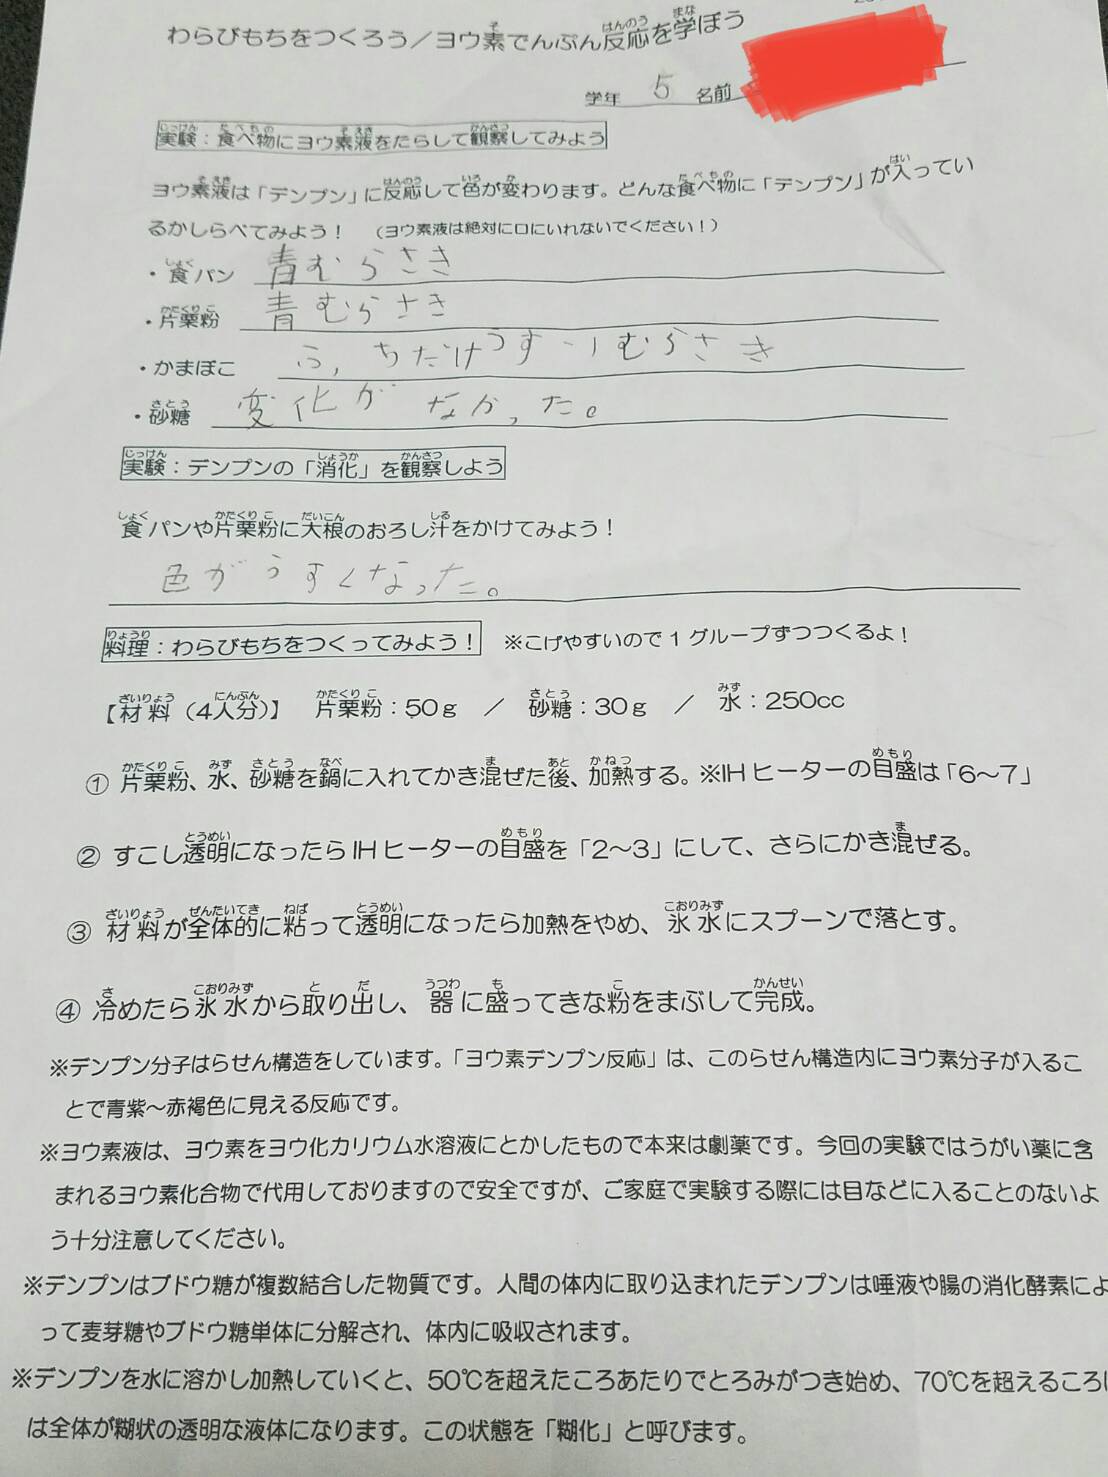 わらびもちをつくろう／ヨウ素でんぷん反応を学ぼう
学年 5 名前
実験：食べ物にヨウ素液をたらして観察してみよう
ヨウ素液は「デンプン」に反応して色が変わります。どんな食べ物に「デンプン」が入ってい
るかしらべてみよう！ （ヨウ素液は絶対に口にいれないでください！）
・食パン 青むらさき
・片栗粉 青むらさき
・かまぼこ ふちだけうすいむらさき
・砂糖 変化がなかった。
実験：デンプンの「消化」を観察しよう
食パンや片栗粉に大根のおろし汁をかけてみよう！
色がうすくなった。
料理：わらびもちをつくってみよう！ ※こげやすいので１グループずつつくるよ！
【材料（4人分）】 片栗粉：50ｇ ／ 砂糖：30ｇ ／ 水：250cc
① 片栗粉、水、砂糖を鍋に入れてかき混ぜた後、加熱する。※IHヒーターの目盛は「6～7」
② すこし透明になったらIHヒーターの目盛を「2～3」にして、さらにかき混ぜる。
③ 材料が全体的に粘って透明になったら加熱をやめ、氷水にスプーンで落とす。
④ 冷めたら氷水から取り出し、器に盛ってきな粉をまぶして完成。
※デンプン分子はらせん構造をしています。「ヨウ素デンプン反応」は、このらせん構造内にヨウ素分子が入るこ
とで青紫～赤褐色に見える反応です。
※ヨウ素液は、ヨウ素をヨウ化カリウム水溶液にとかしたもので本来は劇薬です。今回の実験ではうがい薬に含
まれるヨウ素化合物で代用しておりますので安全ですが、ご家庭で実験する際には目などに入ることのないよ
う十分注意してください。
※デンプンはブドウ糖が複数結合した物質です。人間の体内に取り込まれたデンプンは唾液や腸の消化酵素によ
って麦芽糖やブドウ糖単体に分解され、体内に吸収されます。
※デンプンを水に溶かし加熱していくと、50℃を超えたころあたりでとろみがつき始め、70℃を超えるころに
は全体が糊状の透明な液体になります。この状態を「糊化」と呼びます。